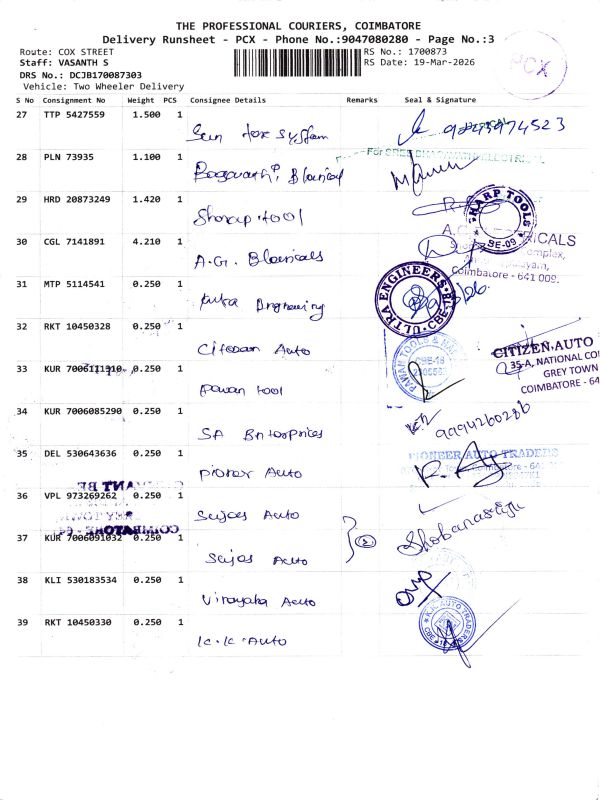 THE PROFESSIONAL COURIERS, COIMBATORE
Delivery Runsheet - PCX - Phone No.:9047080280 - Page No.:3
Route: COX STREET
RS No.: 1700873
Staff: VASANTH S
RS Date: 19-Mar-2026
DRS No.: DCJB170087303
Vehicle: Two Wheeler Delivery
PCX
S No Consignment No Weight PCS Consignee Details Remarks Seal & Signature
27 TTP 5427559 1.500 1 Sun tex system
28 PLN 73935 1.100 1
29 HRD 20873249 1.420 1 Sharap tool
SHARP TOOLS
CBE-09
30 CGL 7141891 4.210 1 A.G. Blecricals
Coimbatore - 641 009.
31 MTP 5114541 0.250 1
ULTRA ENGINEERS
32 RKT 10450328 0.250 1 Citezan Auto
CITIZEN AUTO
35-A, NATIONAL CO
GREY TOWN
COIMBATORE - 64
33 KUR 7006111910 0.250 1 Pawan tool
PAWAN TOOLS &
CBE-18
34 KUR 7006085290 0.250 1 SA Enterprices
9994260286
35 DEL 530643636 0.250 1 Pioner Auto
PIONEER AUTO TRADERS
36 VPL 973269262 0.250 1 Sujas Auto
37 KUR 7006091032 0.250 1 Sujas Auto
2
38 KLI 530183534 0.250 1 Vinayaka Auto
39 RKT 10450330 0.250 1 K.K. Auto
K.K. AUTO TRADERS